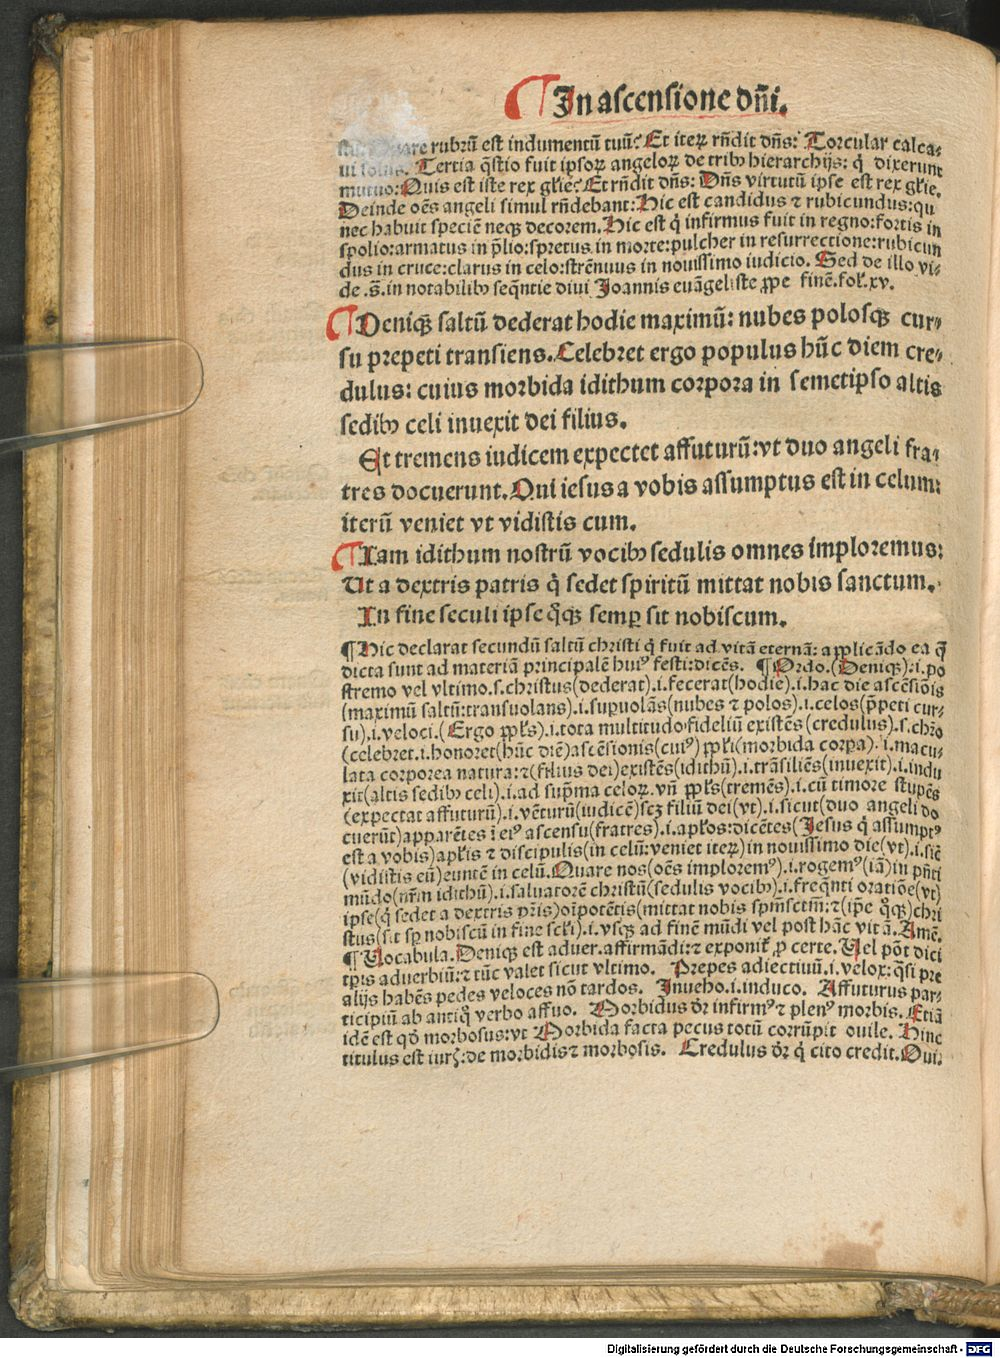 In ascensione dñi.
rubrũ est indumentũ tuũ? Et iteꝝ rñdit dñs: Torcular calca-
ui solus. Tertia q̃stio fuit ipsoꝝ angeloꝝ de trib⁹ hierarchijs: q̇ dixerunt
mutuo: Quis est iste rex gl̃ie? Et rñdit dñs: Dñs virtutũ ipse est rex gl̃ie.
Deinde oẽs angeli simul rñdebant: Hic est candidus ⁊ rubicundus: qu
nec habuit speciẽ neqꝫ decorem. Hic est q̇ infirmus fuit in regno: fortis in
spolio: armatus in p̃lio: spretus in morte: pulcher in resurrectione: rubicun
dus in cruce: clarus in celo: strẽnuus in nouissimo iudicio. Sed de illo vi-
de .s̃. in notabilib⁹ seq̃ntie diui Joannis euãgeliste ꝓpe finẽ. fol̃. xv.
Deniqꝫ saltũ dederat hodie maximũ: nubes polosqꝫ cur-
su prepeti transiens. Celebret ergo populus hũc diem cre-
dulus: cuius morbida idithum corpora in semetipso altis
sedib⁹ celi inuexit dei filius.
Et tremens iudicem expectet affuturũ: vt duo angeli fra-
tres docuerunt. Qui iesus a vobis assumptus est in celum:
iterũ veniet vt vidistis eum.
Iam idithum nostrũ vocib⁹ sedulis omnes imploremus:
Ut a dextris patris q̇ sedet spiritũ mittat nobis sanctum.
In fine seculi ipse q̊qꝫ semꝑ sit nobiscum.
¶ Hic declarat secundũ saltũ christi q̇ fuit ad vitã eternã: applicãdo ea q̃
dicta sunt ad materiã principalẽ hui⁹ festi: dicẽs. ¶ Ordo. (Deniqꝫ) .i. po
stremo vel vltimo .s. christus (dederat) .i. fecerat (hodie) .i. hac die ascẽsiõis
(maximũ saltũ: transuolans) .i. suꝑuolãs (nubes ⁊ polos) .i. celos (p̃peti cur-
su) .i. veloci. (Ergo ppl̃s) .i. tota multitudo fideliũ existẽs (credulus) .s. chr̃o
(celebret .i. honoret (hũc diẽ) ascẽsionis (cui⁹) ppl̃i (morbida corpa) .i. macu-
lata corporea natura: ⁊ (filius dei) existẽs (idithũ) .i. trãsiliẽs (inuexit) .i. indu
xit (altis sedib⁹ celi) .i. ad sup̃ma celoꝝ. vñ ppl̃s (tremẽs) .i. cũ timore stupẽs
(expectat affuturũ) .i. vẽturũ (iudicẽ) scꝫ filiũ dei (vt) .i. sicut (duo angeli do
cuerũt) apparẽtes ĩ ei⁹ ascensu (fratres) .i. apl̃os: dicẽtes (Jesus q̇ assũmpt⁹
est a vobis) apl̃is ⁊ discipulis (in celũ: veniet iteꝝ) in nouissimo die (vt) .i. sic̃
(vidistis eũ) euntẽ in celũ. Quare nos (oẽs implorem⁹) .i. rogem⁹ (iã) in p̃nti
mũdo (nr̃m idithũ) .i. saluatorẽ christũ (sedulis vocib⁹) .i. freq̃nti oratiõe (vt)
ipse (q̇ sedet a dextris pr̃is) oĩpotẽtis (mittat nobis spm̃ sctm̃: ⁊ (ip̃e q̊qꝫ) chri
stus (sit sꝑ nobiscũ in fine scl̃i) .i. vsqꝫ ad finẽ mũdi vel post hãc vitã. Amẽ.
¶ Vocabula. Deniqꝫ est aduer. affirmãdi: ⁊ exponit̃ ꝓ certe. Vel põt dici
tp̃is aduerbiũ: ⁊ tũc valet sicut vltimo. Prepes adiectiuũ .i. velox: q̃si pre
alijs habẽs pedes veloces nõ tardos. Inueho .i. induco. Affuturus par-
ticipiũ ab antiq̊ verbo affuo. Morbidus dr̃ infirm⁹ ⁊ plen⁹ morbis. Etiã
idẽ est qđ morbosus: vt Morbida facta pecus totũ corrũpit ouile. Hinc
titulus est iurꝫ: de morbidis ⁊ morbosis. Credulus dr̃ q̇ cito credit. Qui.
Digitalisierung gefördert durch die Deutsche Forschungsgemeinschaft - DFG